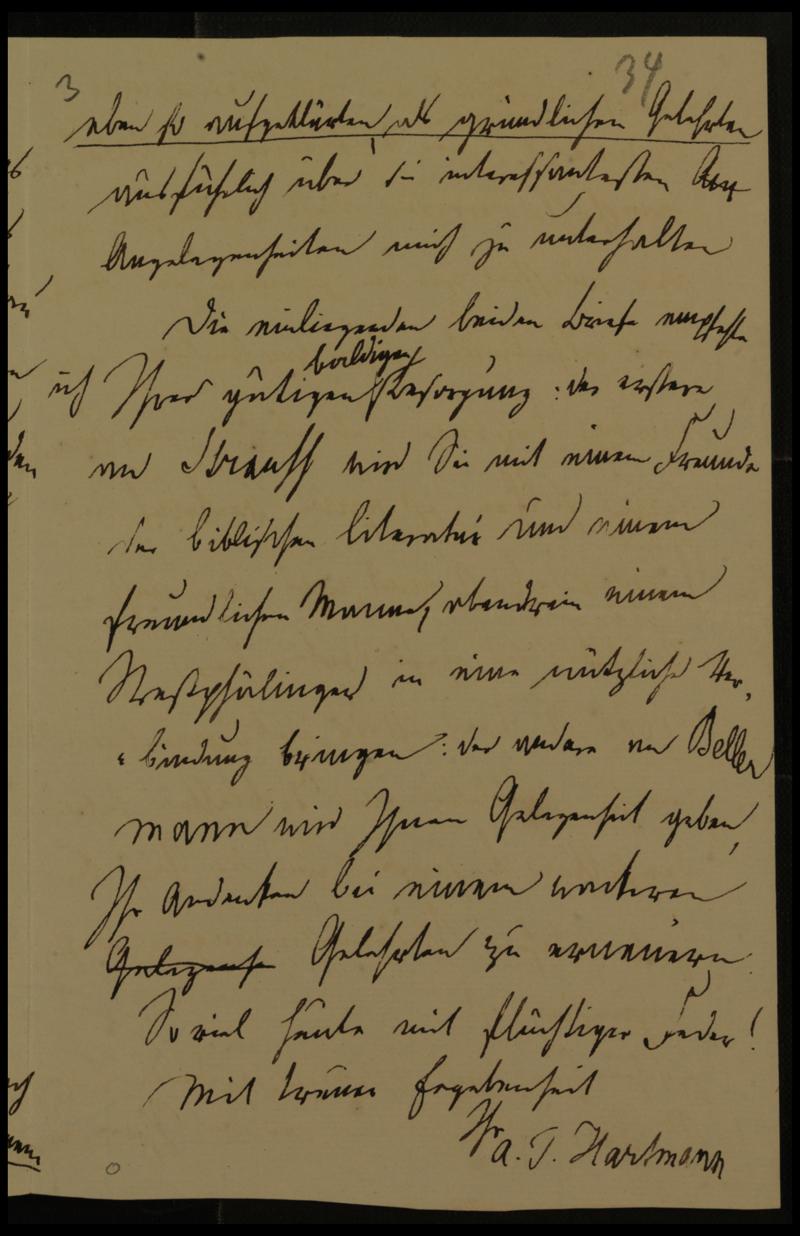 3 34
eben so aufgeklärten, als gründlichen Gelehrten
ausführlich über die interessantesten An
Angelegenheiten mich zu unterhalten
Die einliegenden beiden Briefe empfehle
baldigen
ich Ihrer gütigen Besorgung: der erstere
an Strauß wird Sie mit einem Freunde
der biblischen Literatur und einem
freundlichen Manne, obendrein einem
Westphälinger in eine nützliche Ver-
bindung bringen: der andere an Beller
mann wird Ihnen Gelegenheit geben,
Ihr Andenken bei einem wackeren
Gelegenhe Gelehrten zu erneuern.
So viel heute mit flüchtiger Feder!
Mit treuer Ergebenheit
Ihr
A. T. Hartmann